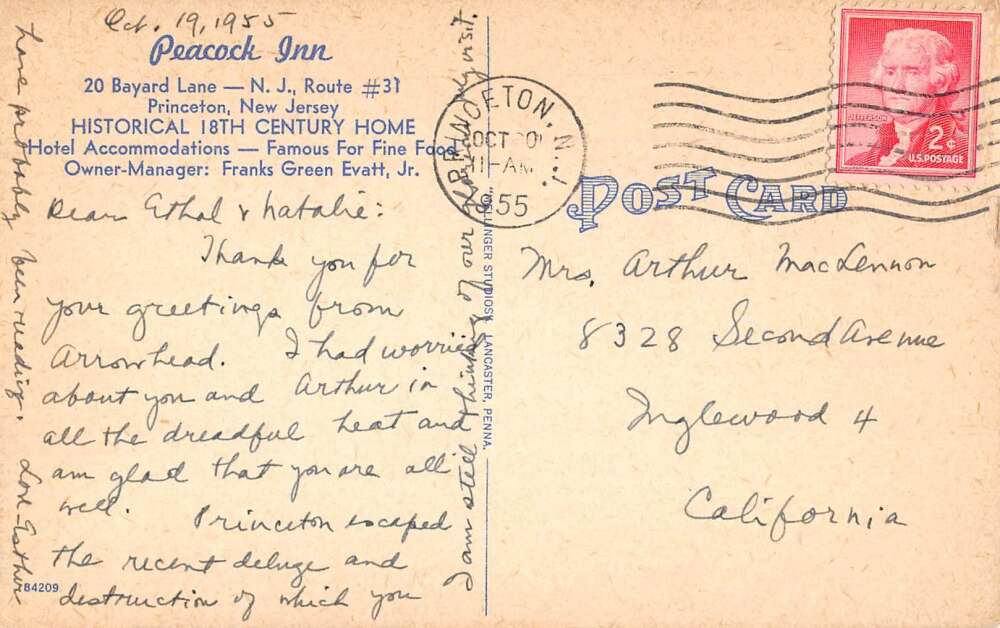 Oct. 19, 1955
Peacock Inn
20 Bayard Lane — N. J., Route #31
Princeton, New Jersey
HISTORICAL 18TH CENTURY HOME
Hotel Accommodations — Famous For Fine Food
Owner-Manager: Franks Green Evatt, Jr.
Dear Ethal & Natalie:
Thank you for
your greetings from
Arrowhead. I had worried
about you and Arthur in
all the dreadful heat and
am glad that you are all
well. Princeton escaped
the recent deluge and
destruction of which you
have probably been reading. Love Esther
I am still thinking of our lovely visit.
84209
WELLINGER STUDIOS, LANCASTER, PENNA.
PRINCETON, N.J.
OCT 20
11-AM
1955
JEFFERSON
2¢
U.S. POSTAGE
POST CARD
Mrs. Arthur MacLennon
8328 Second Avenue
Inglewood 4
California